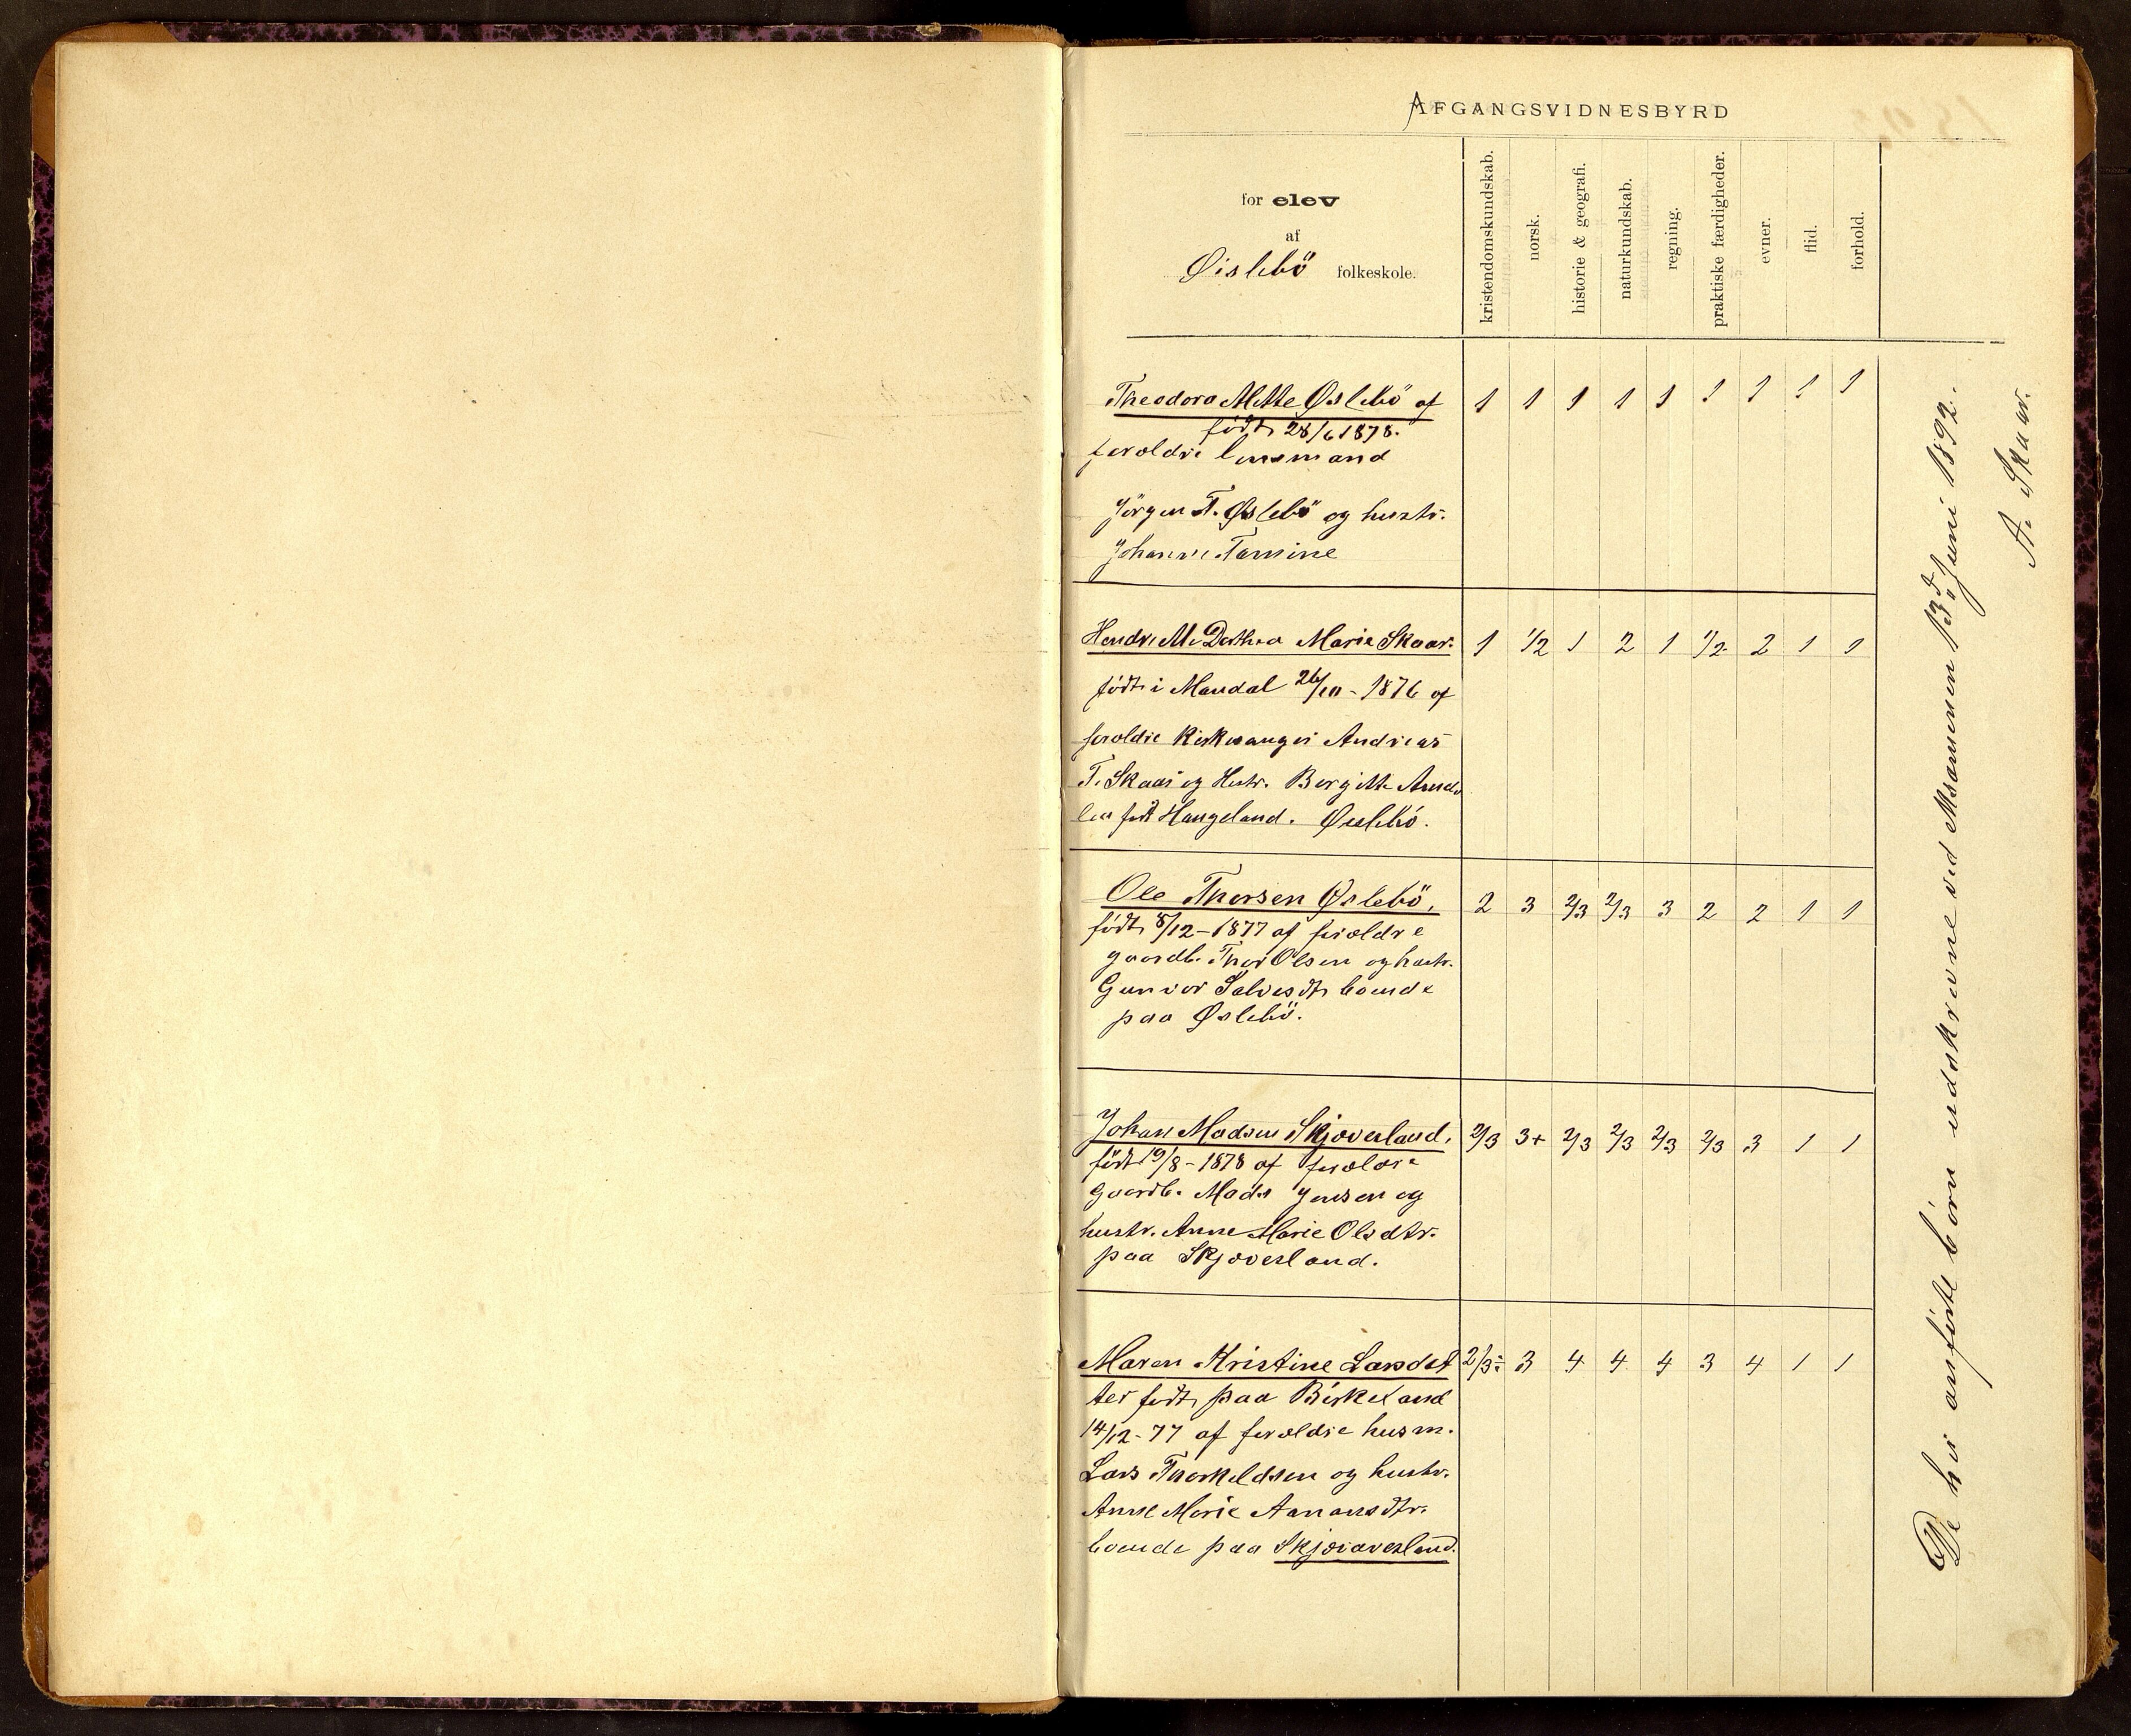 AFGANGSVIDNESBYRD
for elev
af
Øislebö folkeskole.
kristendomskundskab.
norsk.
historie & geografi.
naturkundskab.
regning.
praktiske færdigheder.
evner.
flid.
forhold.
Theodora Mette Øslebö af 1 1 1 1 1 1 1 1 1
født 28/6 1878.
foroldre lensmand
Jörgen T. Øslebö og hustr.
Johanne Tomine
Dorthea Marie Skaar. 1 1/2 1 2 1 1/2 2 1 1
födt i Mandal 26/10 - 1876 af
foroldre Kirkesanger Andreas
T. Skaar og Hustr. Bergitte
født Haugeland. Øislebö.
Ole Thorsen Øslebö, 2 3 2/3 2/3 3 2 2 1 1
födt 8/12 - 1877 af foroldre
gaardb. Thor Olsen og hustr.
Gunvor Salvesdtr boende
paa Øslebö.
Johan Madsen Skjøverland, 2/3 3+ 2/3 2/3 2/3 2/3 3 1 1
födt 19/8 - 1878 af foroldre
Gaardb. Mads Jensen og
hustr. Anne Marie Olsdtr.
paa Skjøverland.
Maren Kristine Larsdat 2/3÷ 3 4 4 4 3 4 1 1
ter födt paa Birkeland
14/12 - 77 af foroldre husm.
Lars Thorkeldsen og hustr.
Anne Marie Aanonsdtr.
boende paa
De her anförte börn udskrevne ved Eksamenen 13d Juni 1892.
A. Skaar.